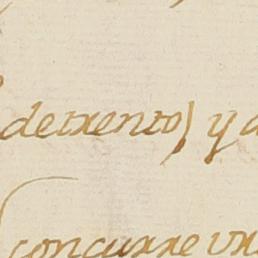 detxento) y a
concurre un